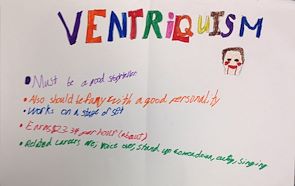 VENTRIQUISM
Must be a good storyteller
Also should be funny with a good personality
Works on a stage or set
Earns $23.34 per hour (about)
Related careers are, voice over, stand up comedian, acting, singing